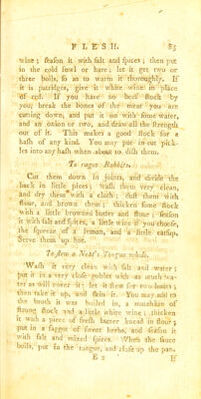 FLESH. 85
wine; season it with salt and spices; then put
in the cold fowl or hare; let it get two or
three boils, so as to warm it thoroughly. If
it is patridges, give it white wine in place
of red. If you have no beef stock by
you, break the bones of the meat you are
cutting down, and put it on with some water,
and an onion or two, and draw all the strength
out of it. This makes a good stock for a
hash of any kind. You may put in our pick-
les into any hash when about to dish them.
To ragoo Rabbits.
Cut them down in joints, and divide the
back in little pieces; wash them very clean,
and dry them with a cloth; dust them with
flour, and brown them; thicken some stock
with a little browned butter and flour; season
it with salt and spices, a little wine if you choose,
the squeeze of a lemon, and a little catsup.
Serve them up hot.
To stew a Neat's Tongue whole.
Wash it very clean with salt and water;
put it in a very close goblet with as much wa-
ter as will cover it; let it stew for two hours;
then take it up, and skin it. You may add to
the broth it was boiled in, a mutchkin of
strong stock and a little white wine; thicken
it with a piece of fresh butter knead in flour;
put in a faggot of sweet herbs, and season it
with salt and mixed spices. When the sauce
boils, put in the tongue, and close up the pan.
E 2 If